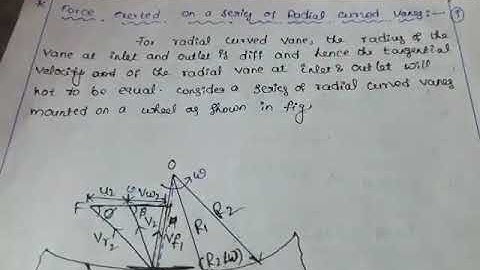 * Force exerted on a series of Radial curved Vanes:-
1
For radial curved vane, the radius of the
vane at inlet and outlet is diff and hence the tangential
velocity and of the radial vane at inlet & outlet will
not to be equal. consider a series of radial curved vanes
mounted on a wheel as shown in fig,
O
ω
u2 Vw2
F
φ β
V2
Vr2
Vf1
R1
R2
(R2/ω)